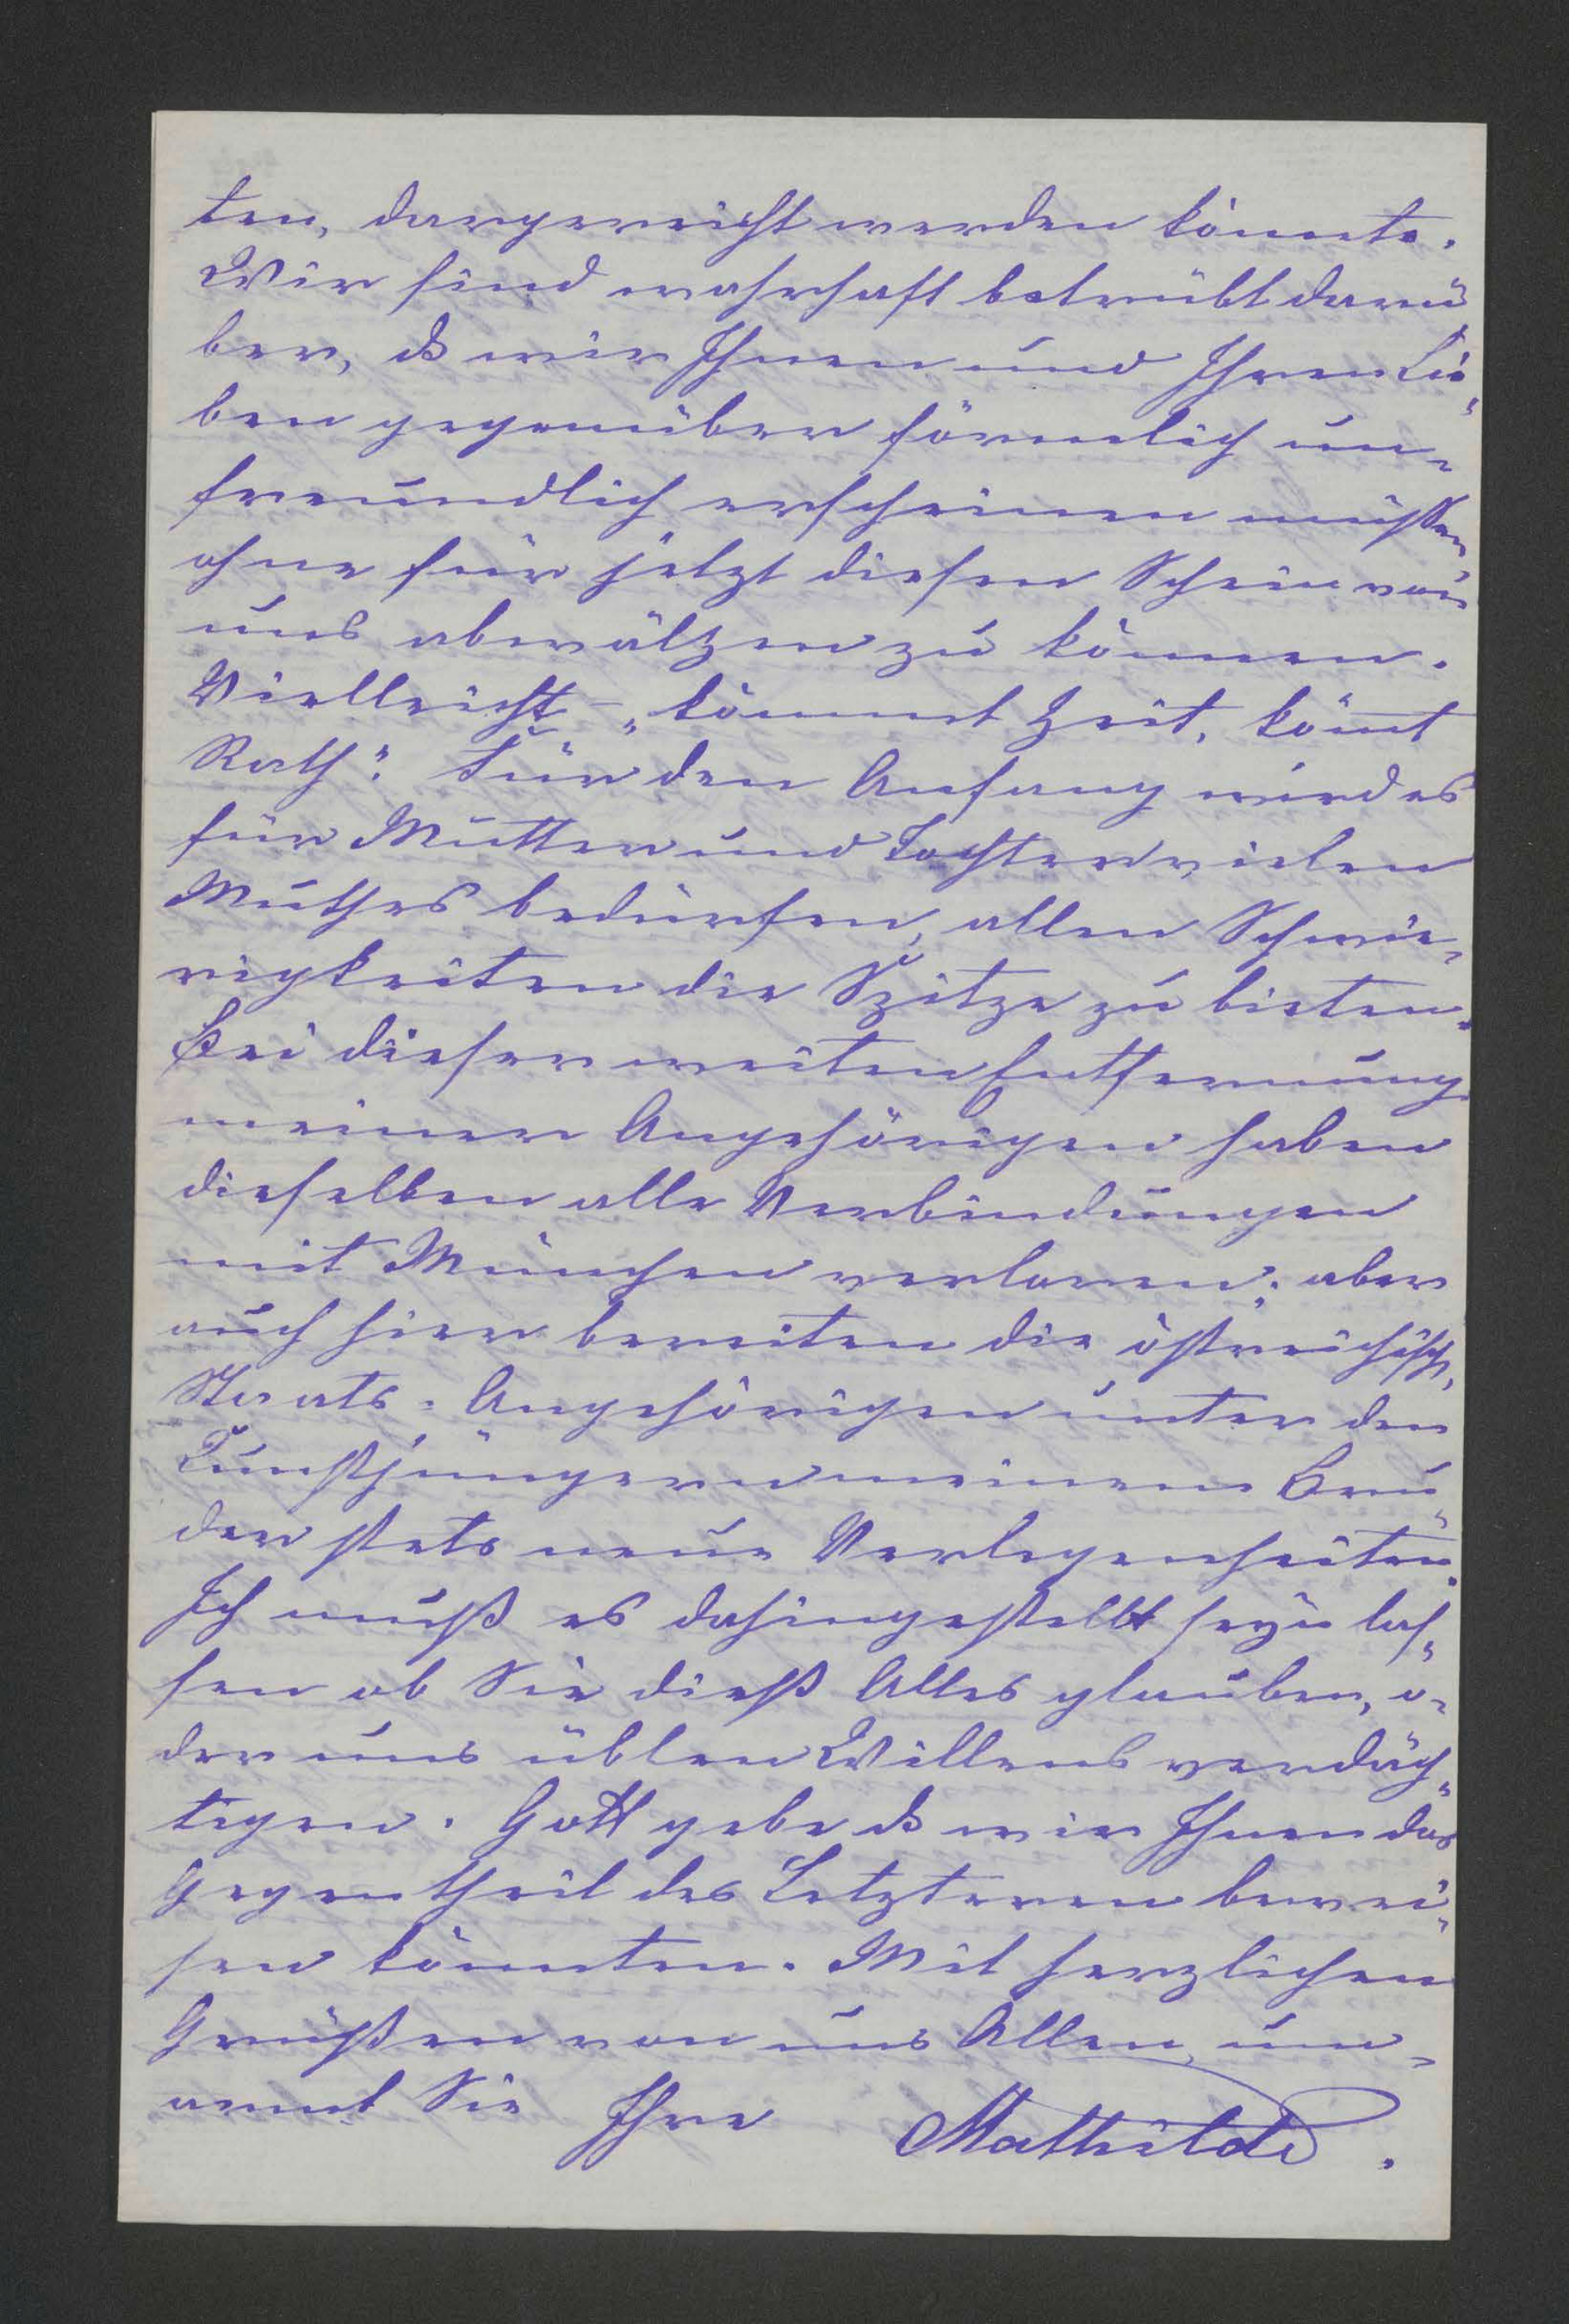 ten, dargereicht werden könnte.
Wir sind wahrhaft betrübt darü
ber, dß wir Ihnen und Ihren Lie-
ben gegenüber förmlich un-
freundlich erscheinen müssen,
ohne für jetzt diesen Schein von
uns abwälzen zu können.
Vielleicht - „kömmt Zeit, kömt
Rath". Für den Anfang wird es
für Mutter und Tochter vielen
Muthes bedürfen, allen Schwie-
rigkeiten die Spitze zu bieten.
Bei dieser weiten Entfernung
meiner Angehörigen haben
dieselben alle Verbindungen
mit München verloren; aber
auch hier bereiten die östreichisch.
Staats-Angehörigen unter den
Kunstjüngern meinem Bru-
der stets neue Verlegenheiten.
Ich muß es dahingestellt seyn las-
sen ob Sie dieß Alles glauben, o-
der uns üblen Willens verdäch-
tigen. Gott gebe dß wir Ihnen das
Gegentheil des Letzteren bewei-
sen könnten. Mit herzlichen
Grüßen von uns Allen um-
armt Sie Ihre Mathilde.